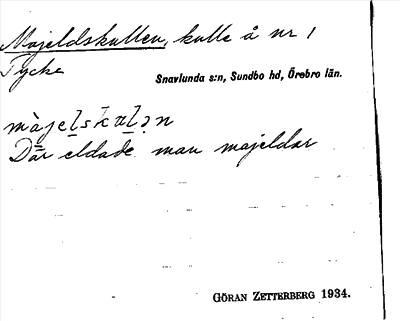 Majeldskullen, kulle å nr 1
Tycke
Snavlunda s:n, Sundbo hd, Örebro län.
màjelskulən
Där eldade man majeldar
GÖRAN ZETTERBERG 1934.